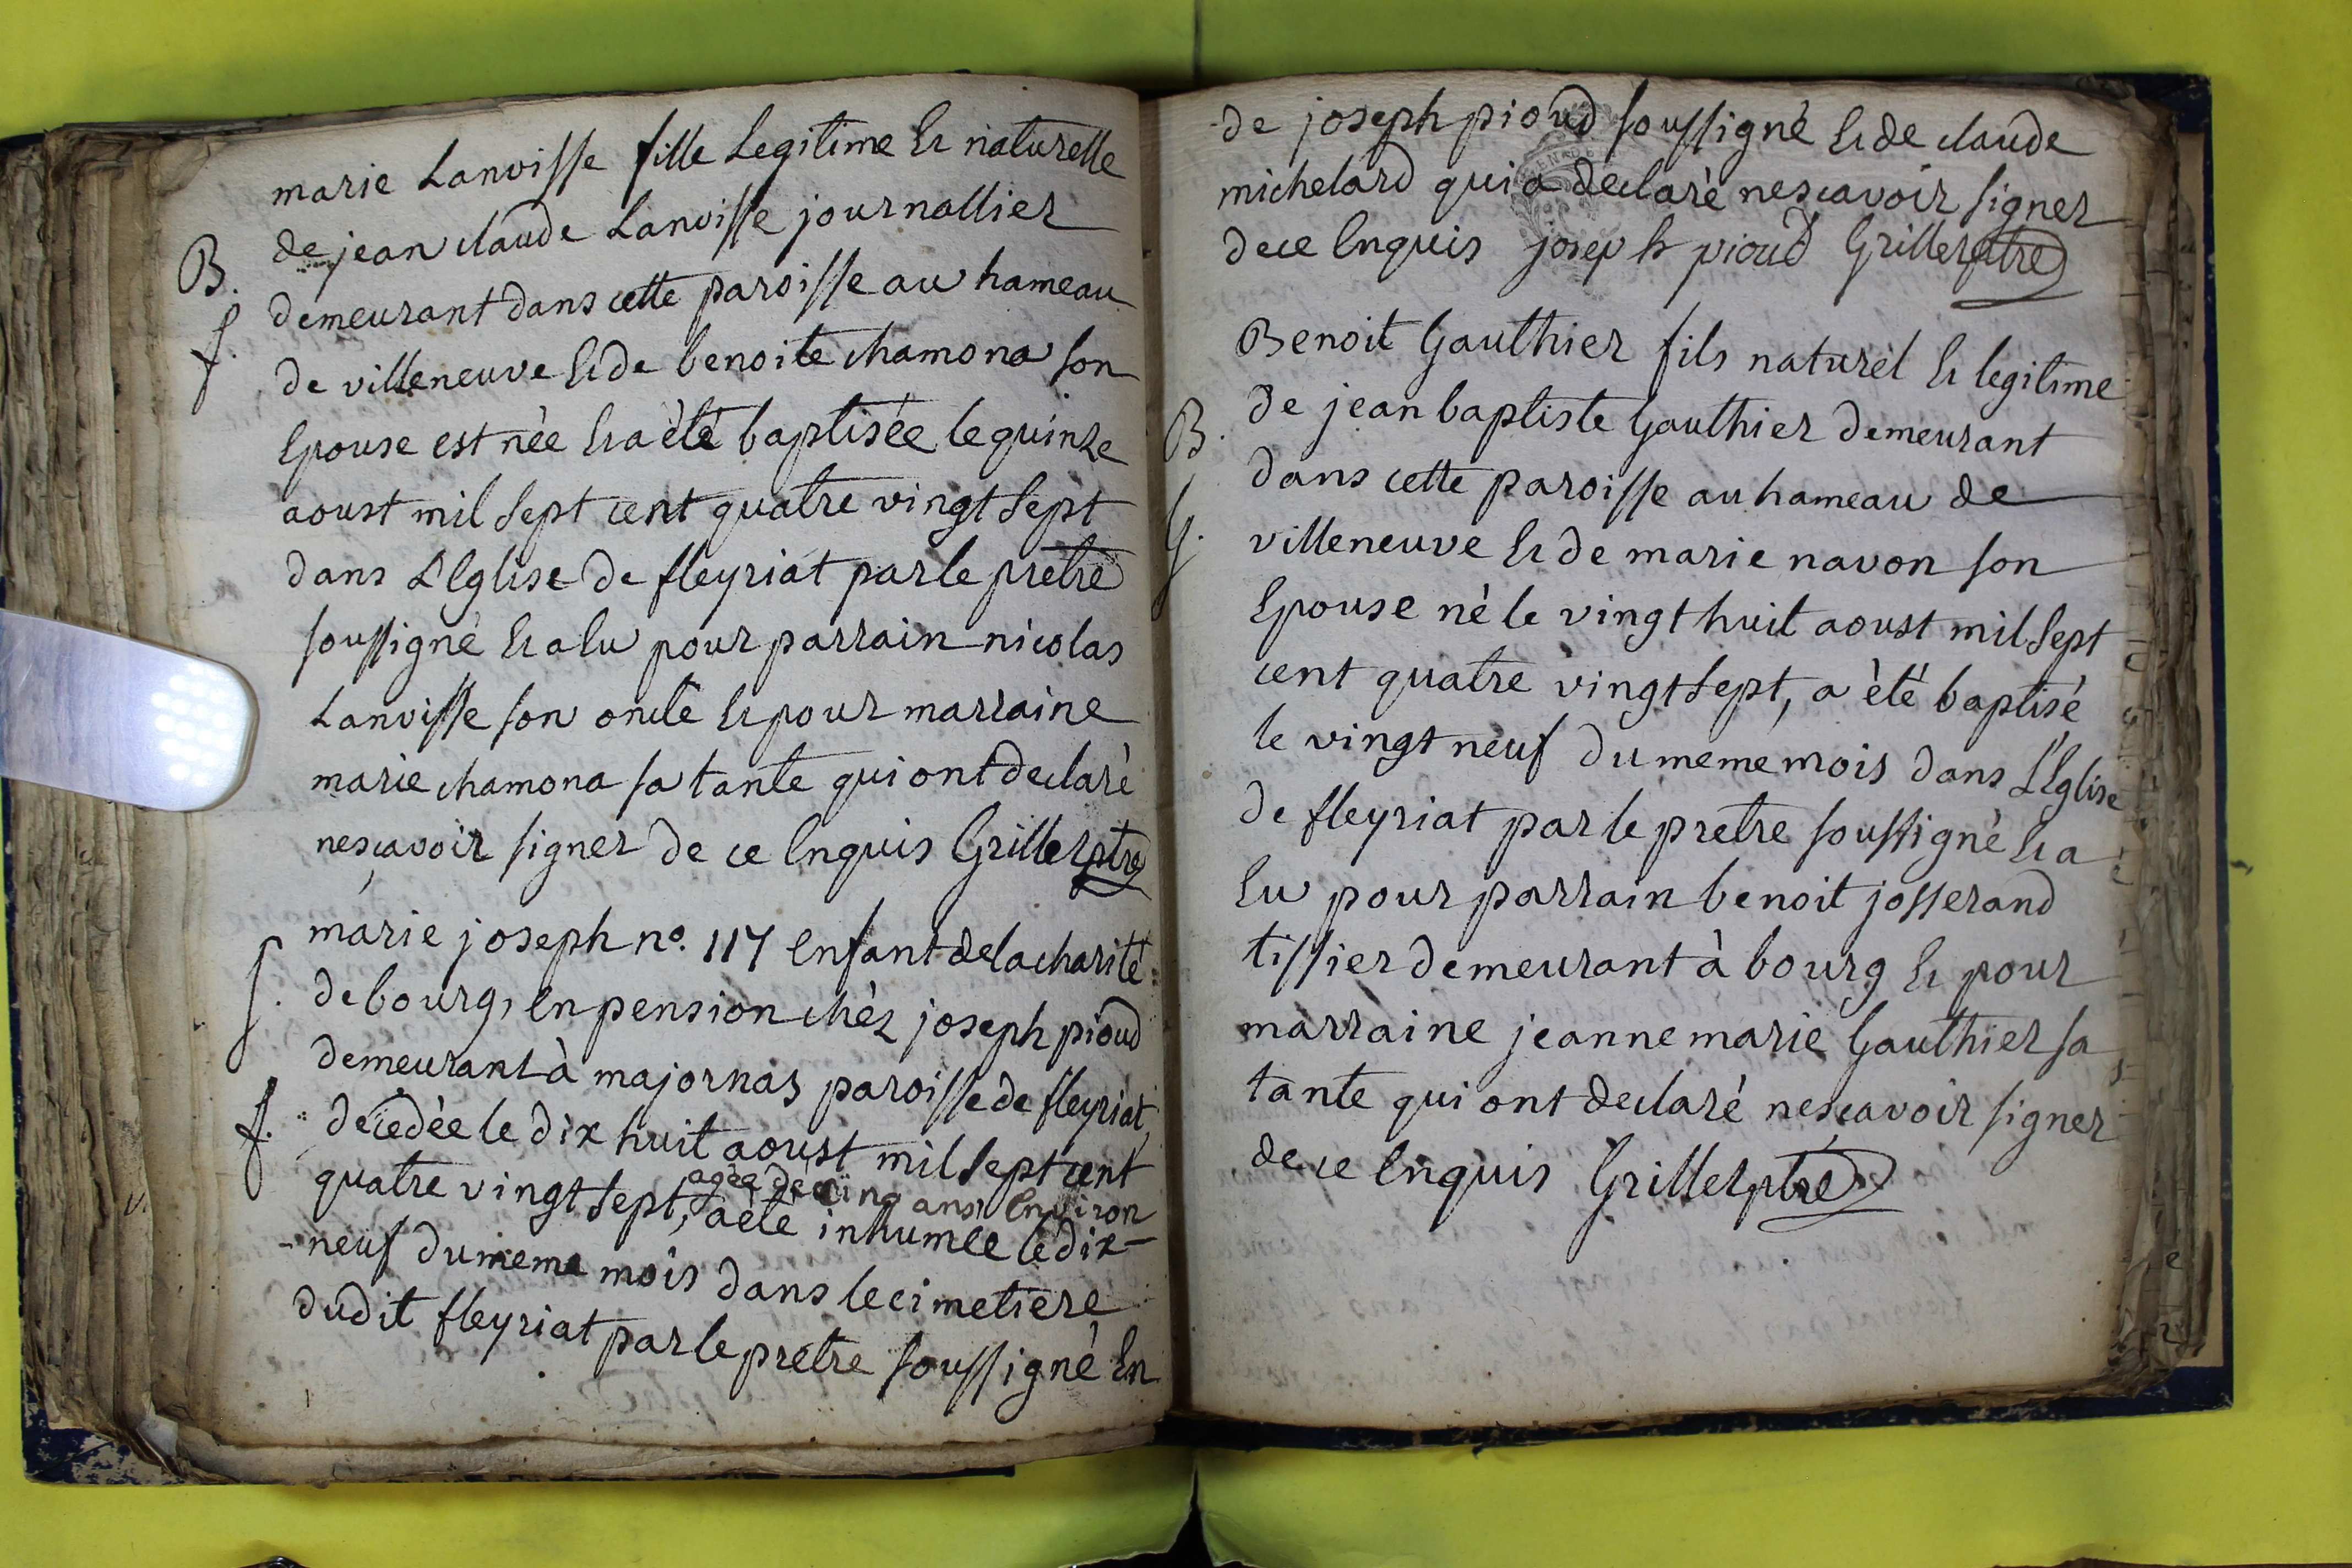 marie Lanvisse fille Legitime Et naturelle
de jean claude Lanvisse journallier
B.
demeurant dans cette paroisse au hameau
f.
de villeneuve Et de benoite chamona son
Epouse est nèe Et a èté baptisée le quinze
aoust mil sept cent quatre vingt sept
dans L'Eglise de fleyriat par le pretre
soussigné Et a Eu pour parrain nicolas
Lanvisse son oncle Et pour marraine
marie chamona sa tante qui ont declarè
nesçavoir signer de ce Enquis Griller ptre
marie joseph no. 117 Enfant de la charité
S.
de bourg, En pension chèz joseph pioud
demeurant à majornas paroisse de fleyriat,
f.
decedèe le dix huit aoust mil sept cent
agèe de cinq ans Environ
quatre vingt sept, a èté inhumèe le dix-
-neuf du meme mois dans le cimetiere
dudit fleyriat par le pretre soussigné En
-de joseph pioud soussigné Et de claude
michelard qui a declarè nescavoir signer
de ce Enquis joseph pioud Griller ptre
Benoit Gauthier fils naturel Et legitime
de jean baptiste Gauthier demeurant
B.
dans cette paroisse au hameau de
G.
villeneuve Et de marie navon son
Epouse nè le vingt huit aoust mil sept
cent quatre vingt sept, a èté baptisé
le vingt neuf du meme mois dans L'Eglise
de fleyriat par le pretre soussigné Et a
Eu pour parrain benoit josserand
tissier demeurant à bourg Et pour
marraine jeanne marie Gauthier sa
tante qui ont declaré nesçavoir signer
de ce Enquis Griller ptre